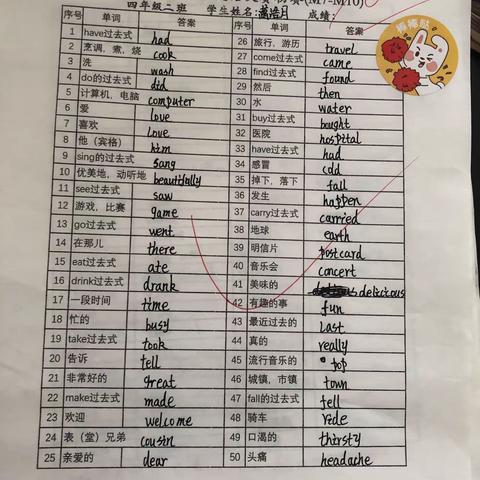 四年级二班 学生姓名: 成绩:
序号 单词 答案 序号 单词 答案
1 have过去式 had 26 旅行，游历 travel
2 烹调，煮，烧 cook 27 come过去式 came
3 洗 wash 28 find过去式 found
4 do的过去式 did 29 然后 then
5 计算机，电脑 computer 30 水 water
6 爱 love 31 buy过去式 bought
7 喜欢 love 32 医院 hospital
8 他（宾格） him 33 have过去式 had
9 sing的过去式 sang 34 感冒 cold
10 优美地，动听地 beautifully 35 掉下，落下 fall
11 see过去式 saw 36 发生 happen
12 游戏，比赛 game 37 carry过去式 carried
13 go过去式 went 38 地球 earth
14 在那儿 there 39 明信片 postcard
15 eat过去式 ate 40 音乐会 concert
16 drink过去式 drank 41 美味的 delicious
17 一段时间 time 42 有趣的事 fun
18 忙的 busy 43 最近过去的 last
19 take过去式 took 44 真的 really
20 告诉 tell 45 流行音乐的 pop
21 非常好的 great 46 城镇，市镇 town
22 make过去式 made 47 fall的过去式 fell
23 欢迎 welcome 48 骑车 ride
24 表（堂）兄弟 cousin 49 口渴的 thirsty
25 亲爱的 dear 50 头痛 headache
棒棒哒